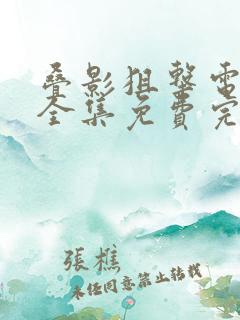 叠影狙擊電
全集免費完
張樵
未任同意禁止转载